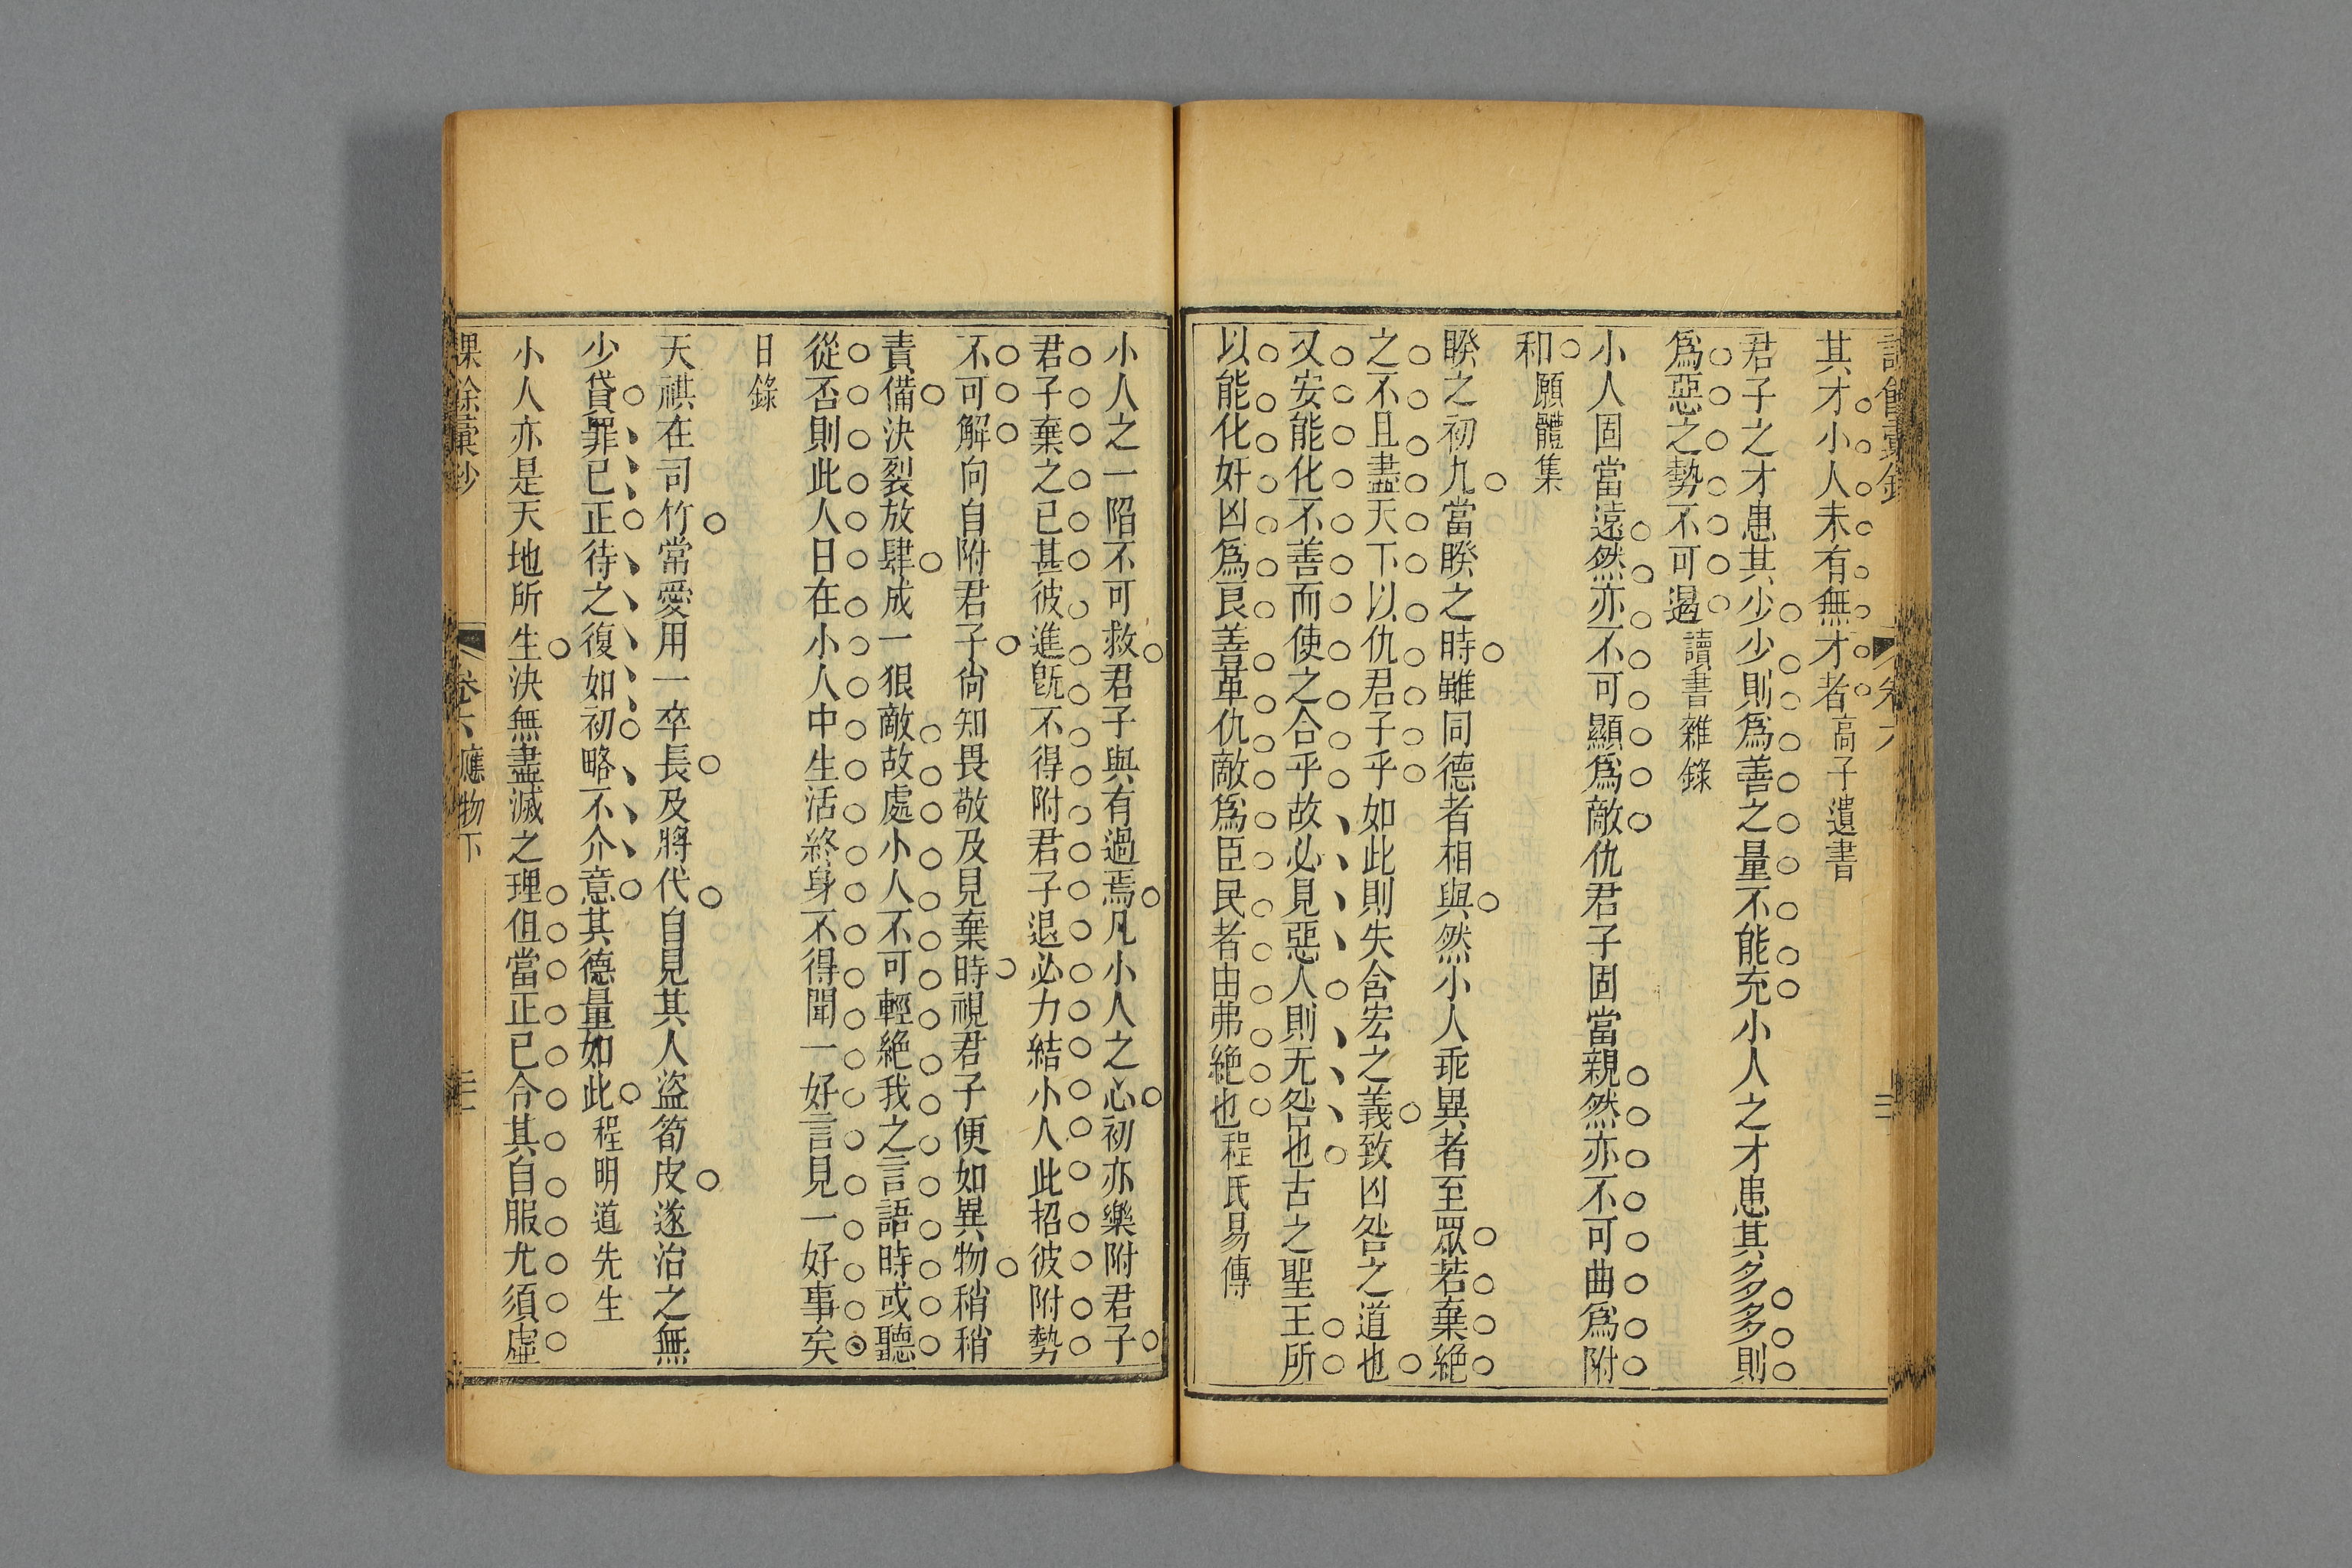 卷六
其才小人未有無才者高子遺書
君子之才患其少少則爲善之量不能充小人之才患其多多則
爲惡之勢不可遏讀書雜錄
小人固當遠然亦不可顯爲敵仇君子固當親然亦不可曲爲附
和願體集
睽之初九當睽之時雖同德者相與然小人乖異者至眾若棄絕
之不且盡天下以仇君子乎如此則失含宏之義致凶咎之道也
又安能化不善而使之合乎故必見惡人則无咎也古之聖王所
以能化奸凶爲良善革仇敵爲臣民者由弗絕也程氏易傳
小人之一陷不可救君子與有過焉凡小人之心初亦樂附君子
君子棄之已甚彼進旣不得附君子退必力結小人此招彼附勢
不可解向自附君子尙知畏敬及見棄時視君子便如異物稍稍
責備決裂放肆成一狠敵故處小人不可輕絕我之言語時或聽
從否則此人日在小人中生活終身不得聞一好言見一好事矣
日錄
天祺在司竹常愛用一卒長及將代自見其人盜筍皮遂治之無
少貸罪已正待之復如初略不介意其德量如此程明道先生
小人亦是天地所生決無盡滅之理但當正已合其自服尤須虛
課餘彙鈔 卷六 應物下